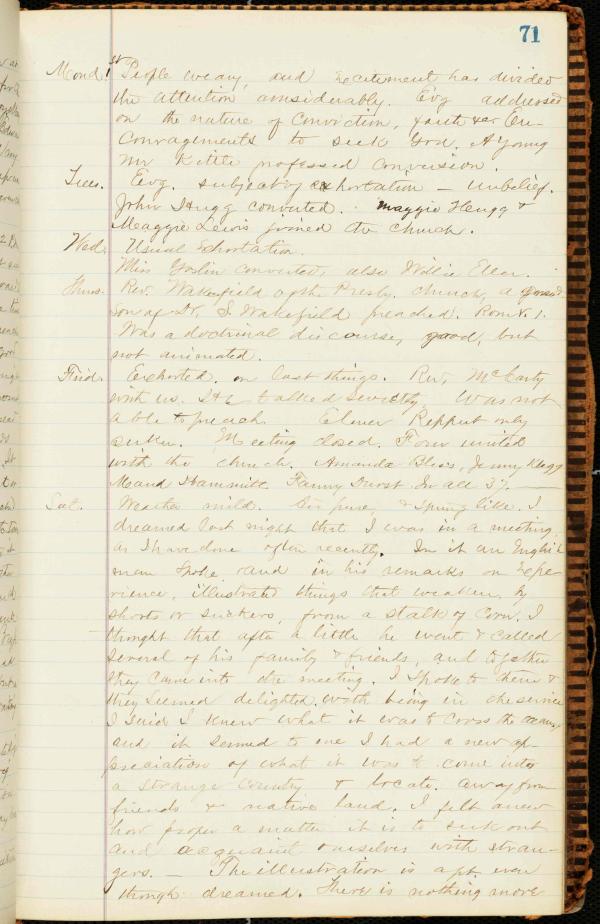 71
Mond. 1st People weary, and excitement has divided
the attention considerably. Evg addressed
on the nature of Conviction, faith & En-
couragements to seek God. A young
Mr Kettle professed conversion.
Tues. Evg. subject of exhortation — Unbelief.
John Hugg converted. Maggie Hugg &
Maggie Lewis joined the church.
Wed. Usual Exhortation.
Miss Goslin converted, also Willie Eller.
Thurs. Rev. Wakefield of the Presby. church, a grand
Son of Dr. S. Wakefield preached. Rom 8. 1.
Was a doctrinal discourse, good, but
not animated.
Frid. Exhorted on last things. Rev. McCarty
with us. He talked sweetly. Was not
able to preach. Elmer Reppert only
seeker. Meeting closed. Four united
with the church. Amanda Bliss, Jenny Klegg
Maud Hammitt. Fanny Durst. In all 37.
Sat. Weather mild. Air pure, & Spring like. I
dreamed last night that I was in a meeting,
as I have done often recently. In it an English
man spoke and in his remarks on Expe-
rience, illustrated things that weaken by
shorts or suckers, from a stalk of Corn. I
thought that after a little he went & called
several of his family & friends, and together
they came into the meeting. I spoke to them &
they seemed delighted with being in the service
I said I knew what it was to cross the ocean,
and it seemed to me I had a new ap-
preciation of what it was to come into
a strange country & locate. away from
friends & native land. I felt anew
how proper a matter it is to seek out
and acquaint ourselves with stran-
gers. — The illustration is apt, even
though dreamed. There is nothing more